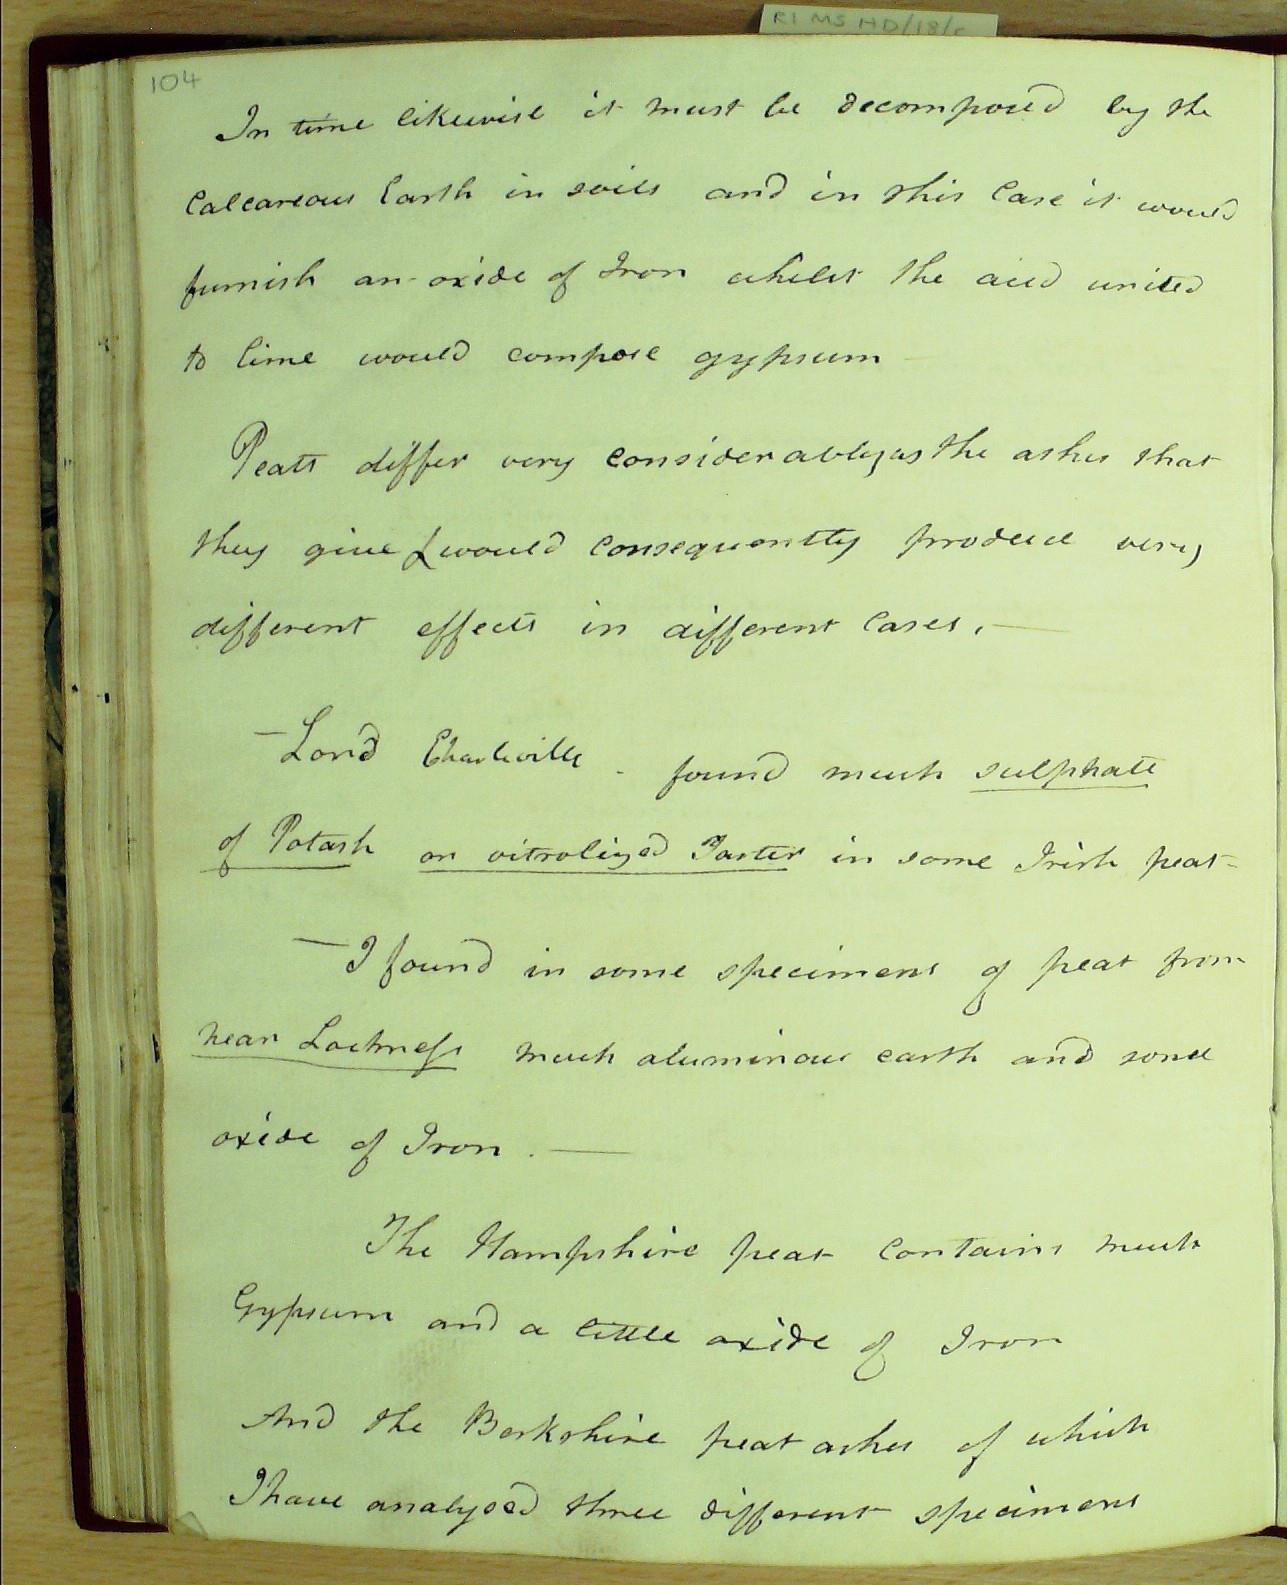 RI MS HD/18/c
104
In time likewise it must be decomposed by the
Calcareous Earth in soils and in this Case it would
furnish an oxide of Iron whilst the acid united
to lime would compose gypsum
Peats differ very considerably, as the ashes that
they give & would consequently produce very
different effects in different Cases. —
— Lord Charleville - found much sulphate
of Potash or vitrolized Tarter in some Irish peat -
— I found in some specimens of peat from
near Lochness much aluminous earth and some
oxide of Iron. —
The Hampshire peat contains much
Gypsum and a little oxide of Iron
And the Berkshire peat ashes of which
I have analysed three different specimens